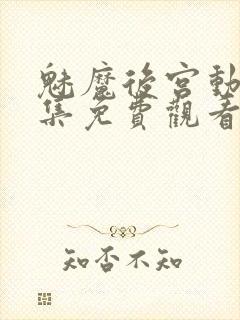 魅魔後宮動
集免費觀看
知否不知